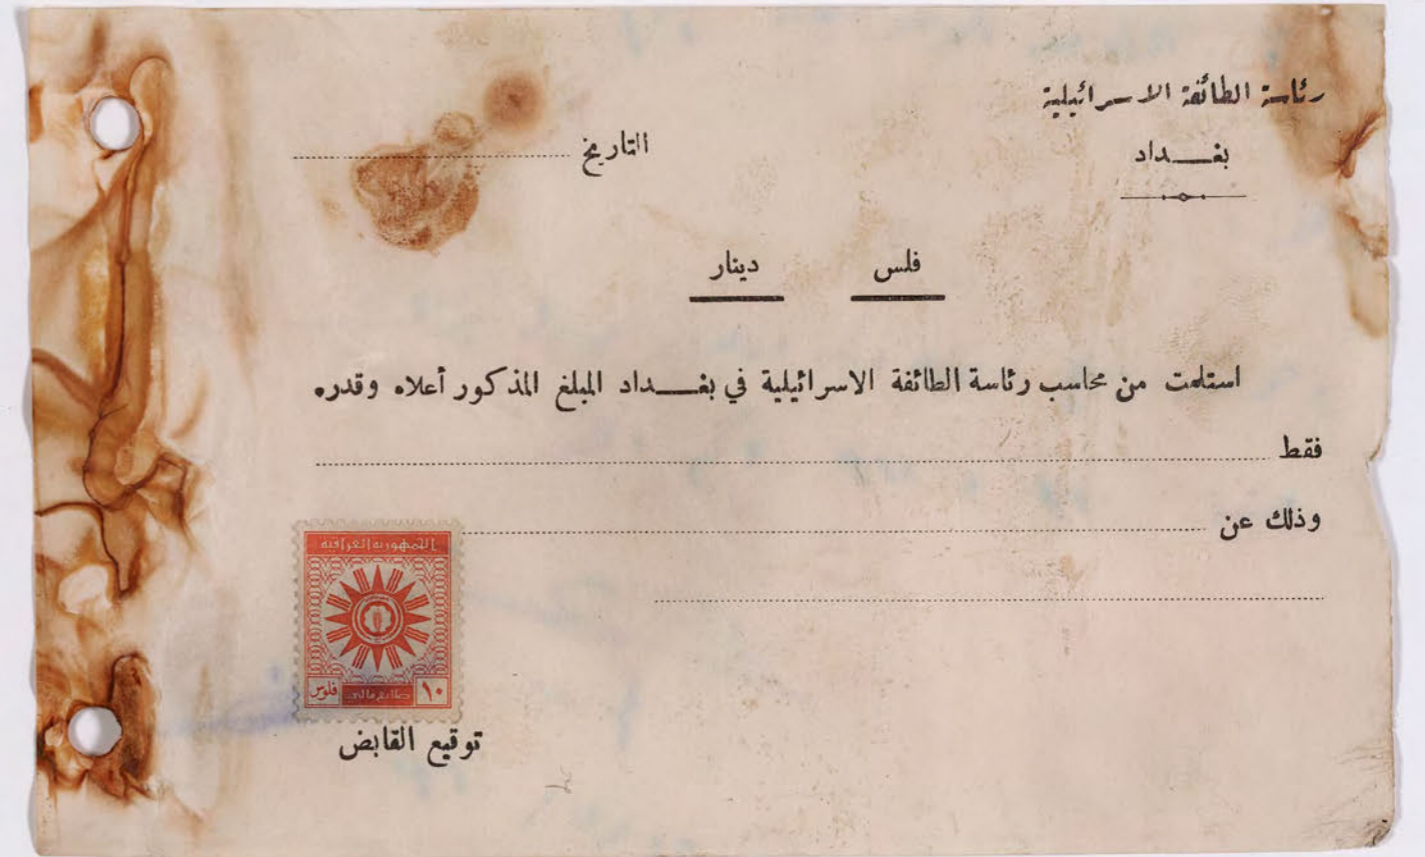 رئاسة الطائفة الاسرائيلية
بغـــداد
التاريخ
فلس دينار
استلمت من محاسب رئاسة الطائفة الاسرائيلية في بغـــداد المبلغ المذكور أعلاه وقدره
فقط
وذلك عن
الجمهورية العراقية
١٠ طابع مالي فلوس
توقيع القابض